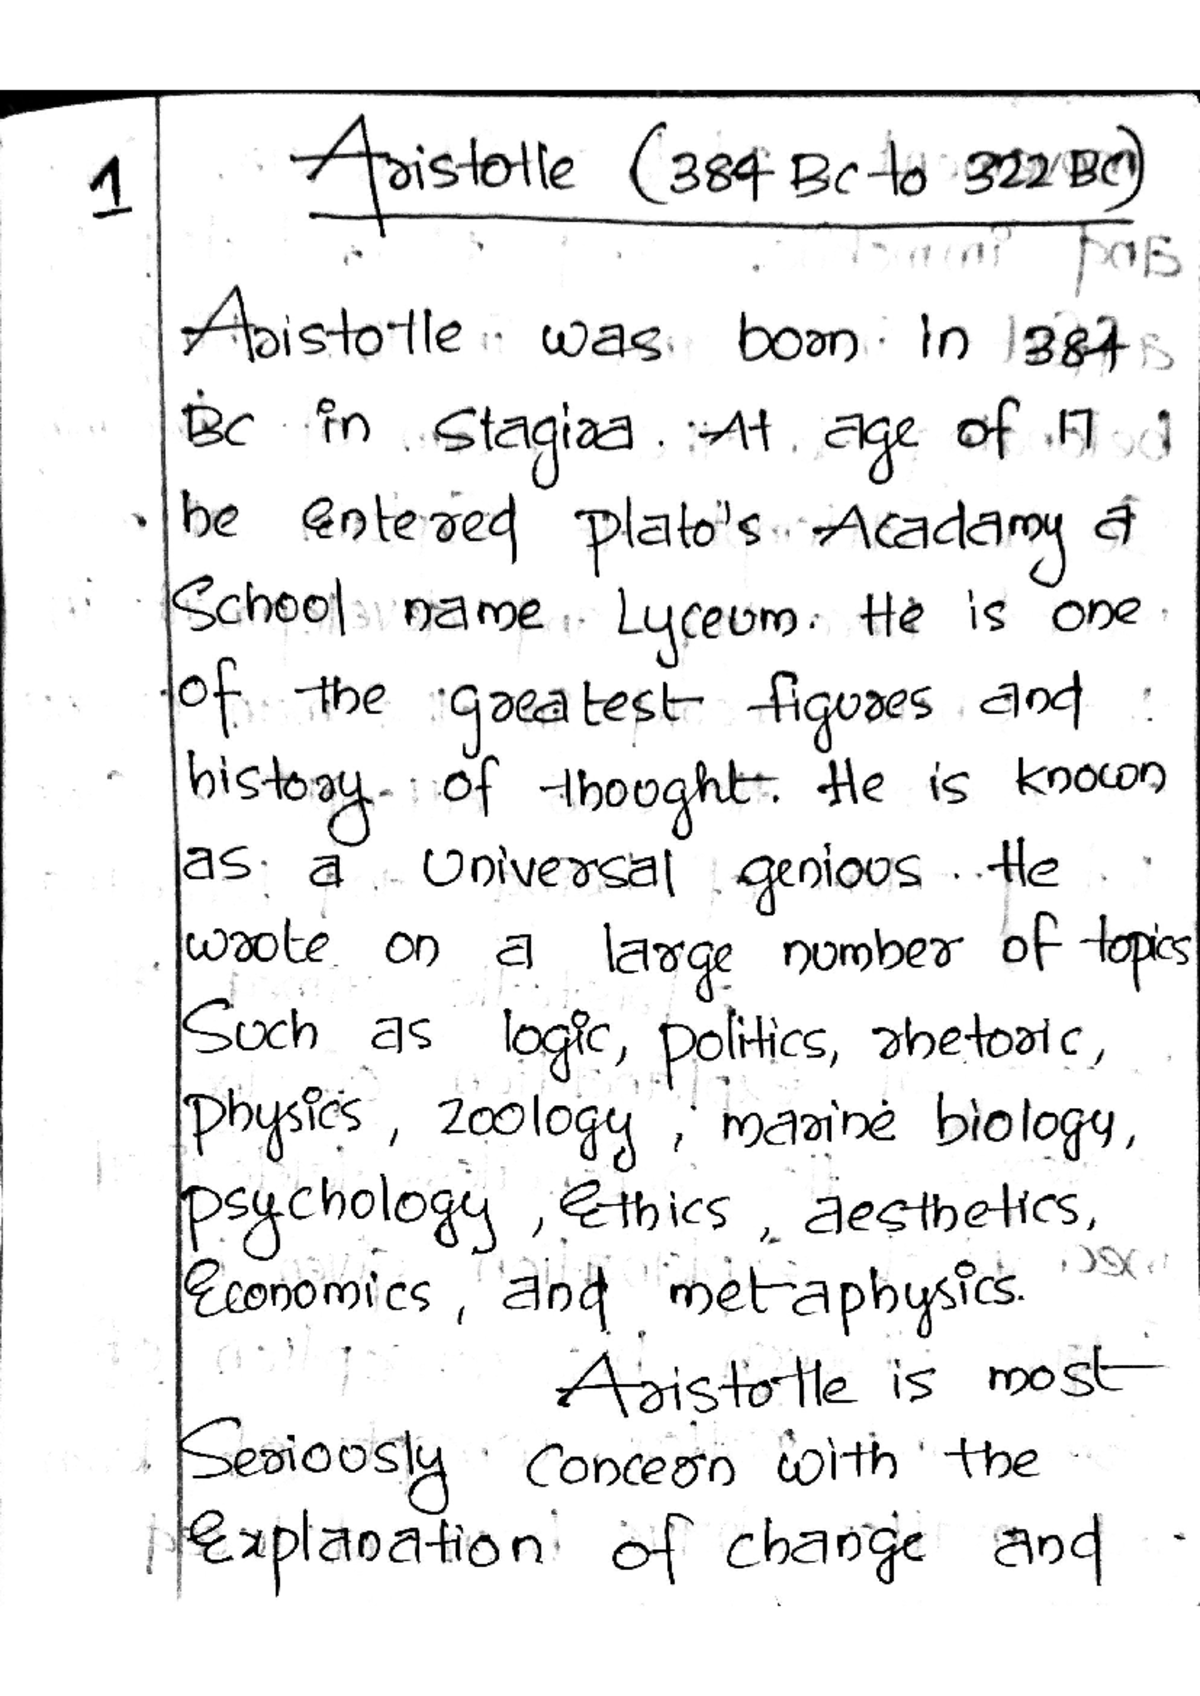 1
Aristotle (384 BC to 322 BC)
Aristotle was born in 384
BC in Stagira. At age of 17
he entered Plato's Acadamy a
School name Lyceum. He is one
of the greatest figures and
history of thought. He is known
as a Universal genious. He
wrote on a large number of topics
Such as logic, politics, rhetoric,
physics, zoology, marine biology,
psychology, Ethics, aesthetics,
Economics, and metaphysics.
Aristotle is most
Seriously concern with the
Explanation of change and